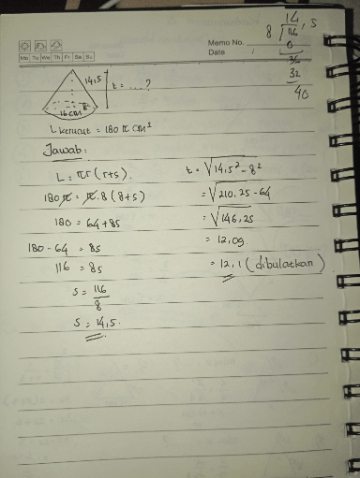 Memo No.
Date
Mo Tu We Th Fr Sa Su
14,5
8 √116
8
36
32
40
14,5
t = .... ?
8
16 cm
L kerucut = 180 π cm²
Jawab:
L = πr (r+s).
180π = π.8 (8+s)
180 = 64 + 8s
180 - 64 = 8s
116 = 8s
s = 116
8
s = 14,5.
t = √14,5² - 8²
= √210,25 - 64
= √146,25
= 12,09
= 12,1 (dibulatkan)